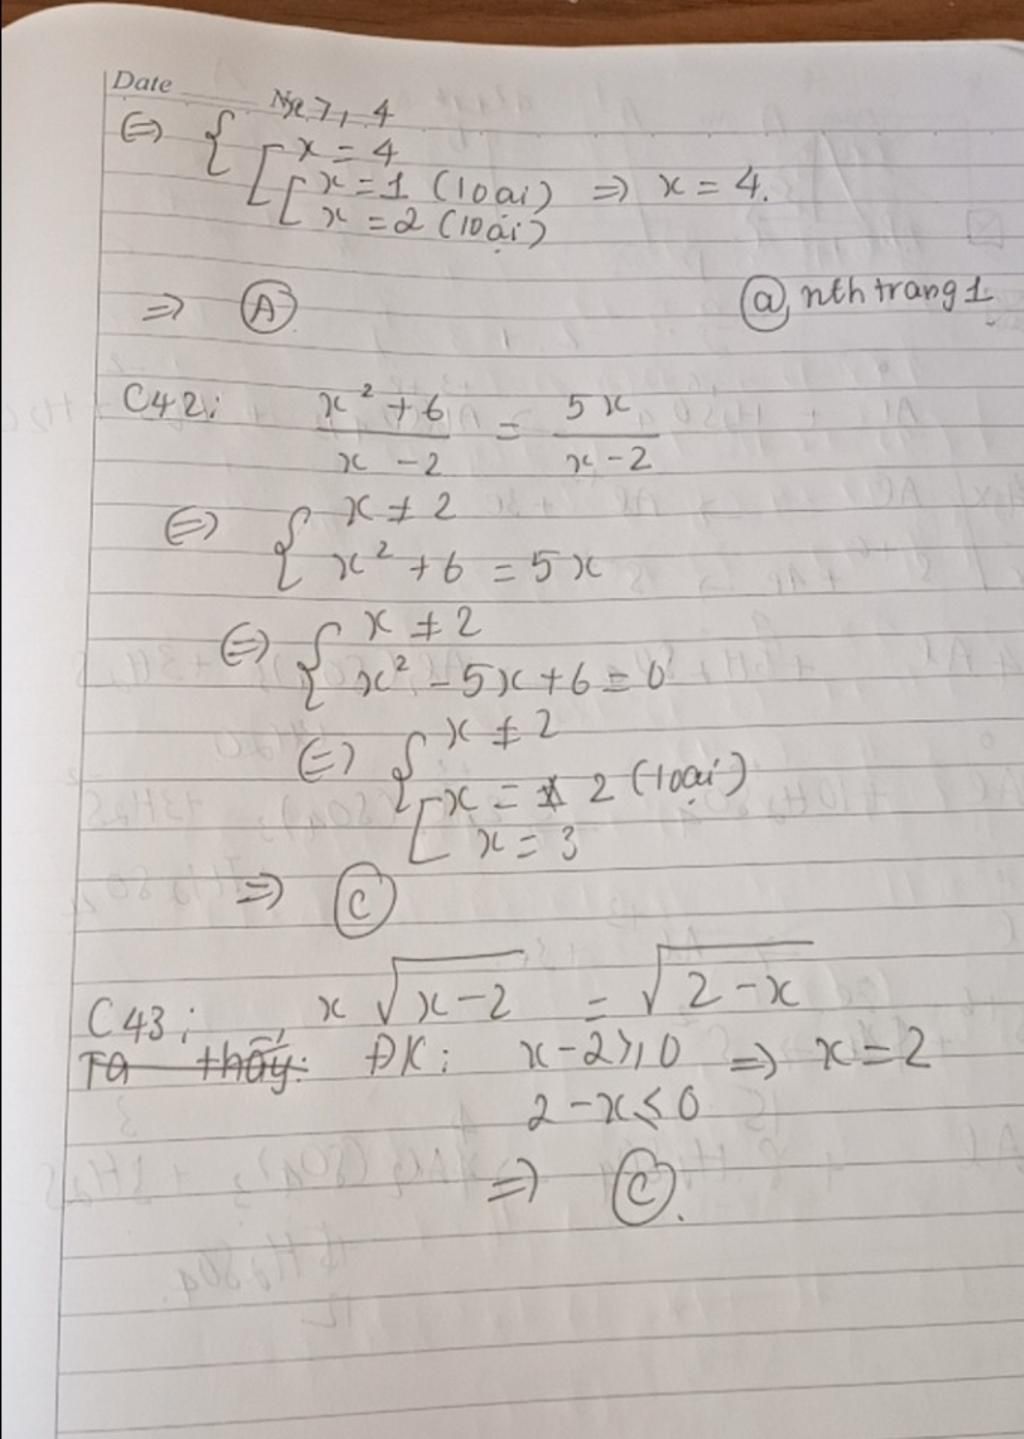 Date
x ⩾ 4
⇔ { [ x = 4
[ x = 1 (loại) ⇒ x = 4.
x = 2 (loại)
⇒ Ⓐ
@nth trang 1
C42: (x² + 6)/(x - 2) = 5x/(x - 2)
⇔ { x ≠ 2
x² + 6 = 5x
⇔ { x ≠ 2
x² - 5x + 6 = 0
⇔ { x ≠ 2
[ x = 2 (loại)
x = 3
⇒ Ⓒ
C43: x √(x-2) = √(2-x)
Ta thấy: ĐK: x - 2 ⩾ 0 ⇒ x = 2
2 - x ≤ 0
⇒ Ⓒ.